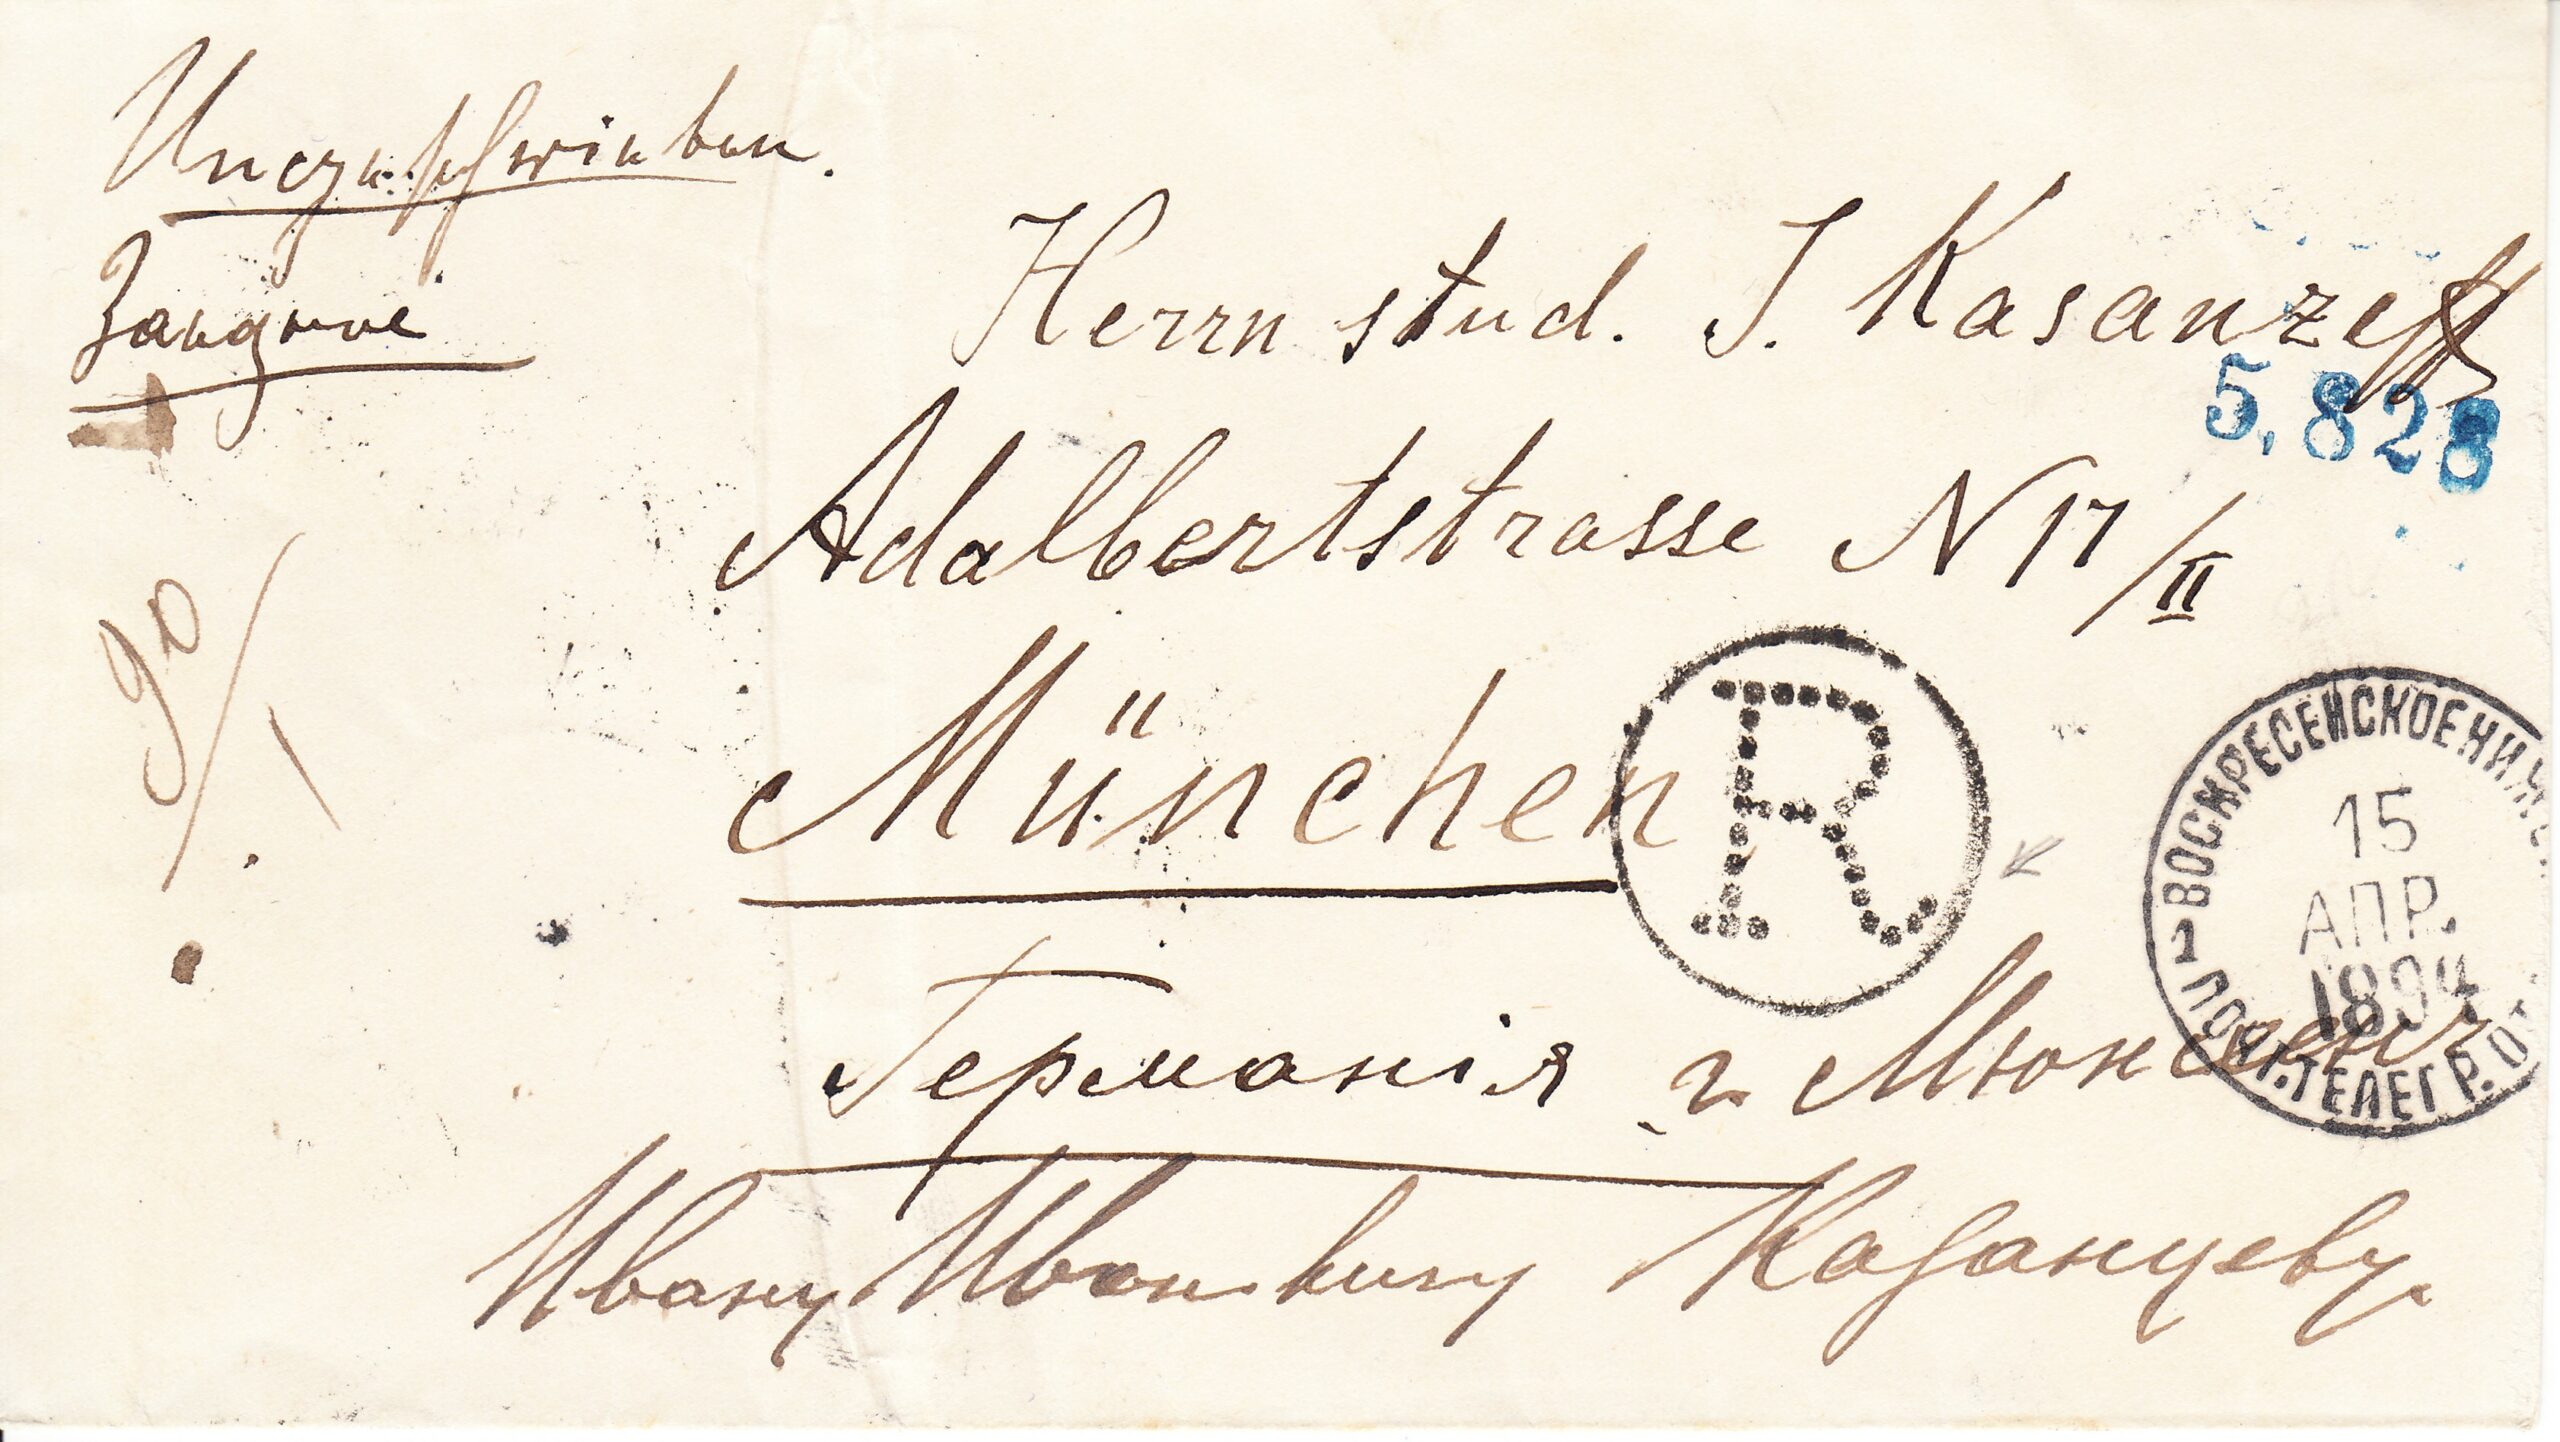 Заказное
Herrn stud. J. Kasanzeff
5,828
Adalbertstrasse N 17/II
90/
München
R
ВОСКРЕСЕНСКОЕ. НИЖЕГ.
15
АПР.
1894
1 ПОЧТ. ТЕЛЕГР. ОТ
Германія г. Мюнхенъ
Ивану Ивановичу Казанцеву.